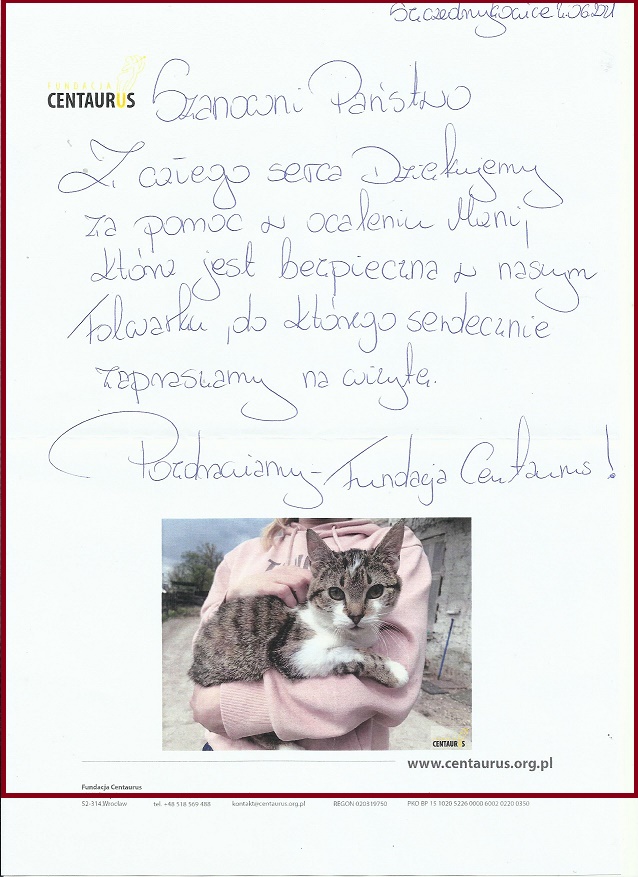 Szczedrzykowice 2.06.2021
FUNDACJA
CENTAURUS
Szanowni Państwo
Z całego serca Dziękujemy
za pomoc w ocaleniu Mani,
która jest bezpieczna w naszym
Folwarku, do którego serdecznie
zapraszamy na wizytę.
Pozdrawiamy - Fundacja Centaurus!
CENTAURUS
www.centaurus.org.pl
Fundacja Centaurus
52-314 Wrocław tel. +48 518 569 488 kontakt@centaurus.org.pl REGON 020319750 PKO BP 15 1020 5226 0000 6002 0220 0350